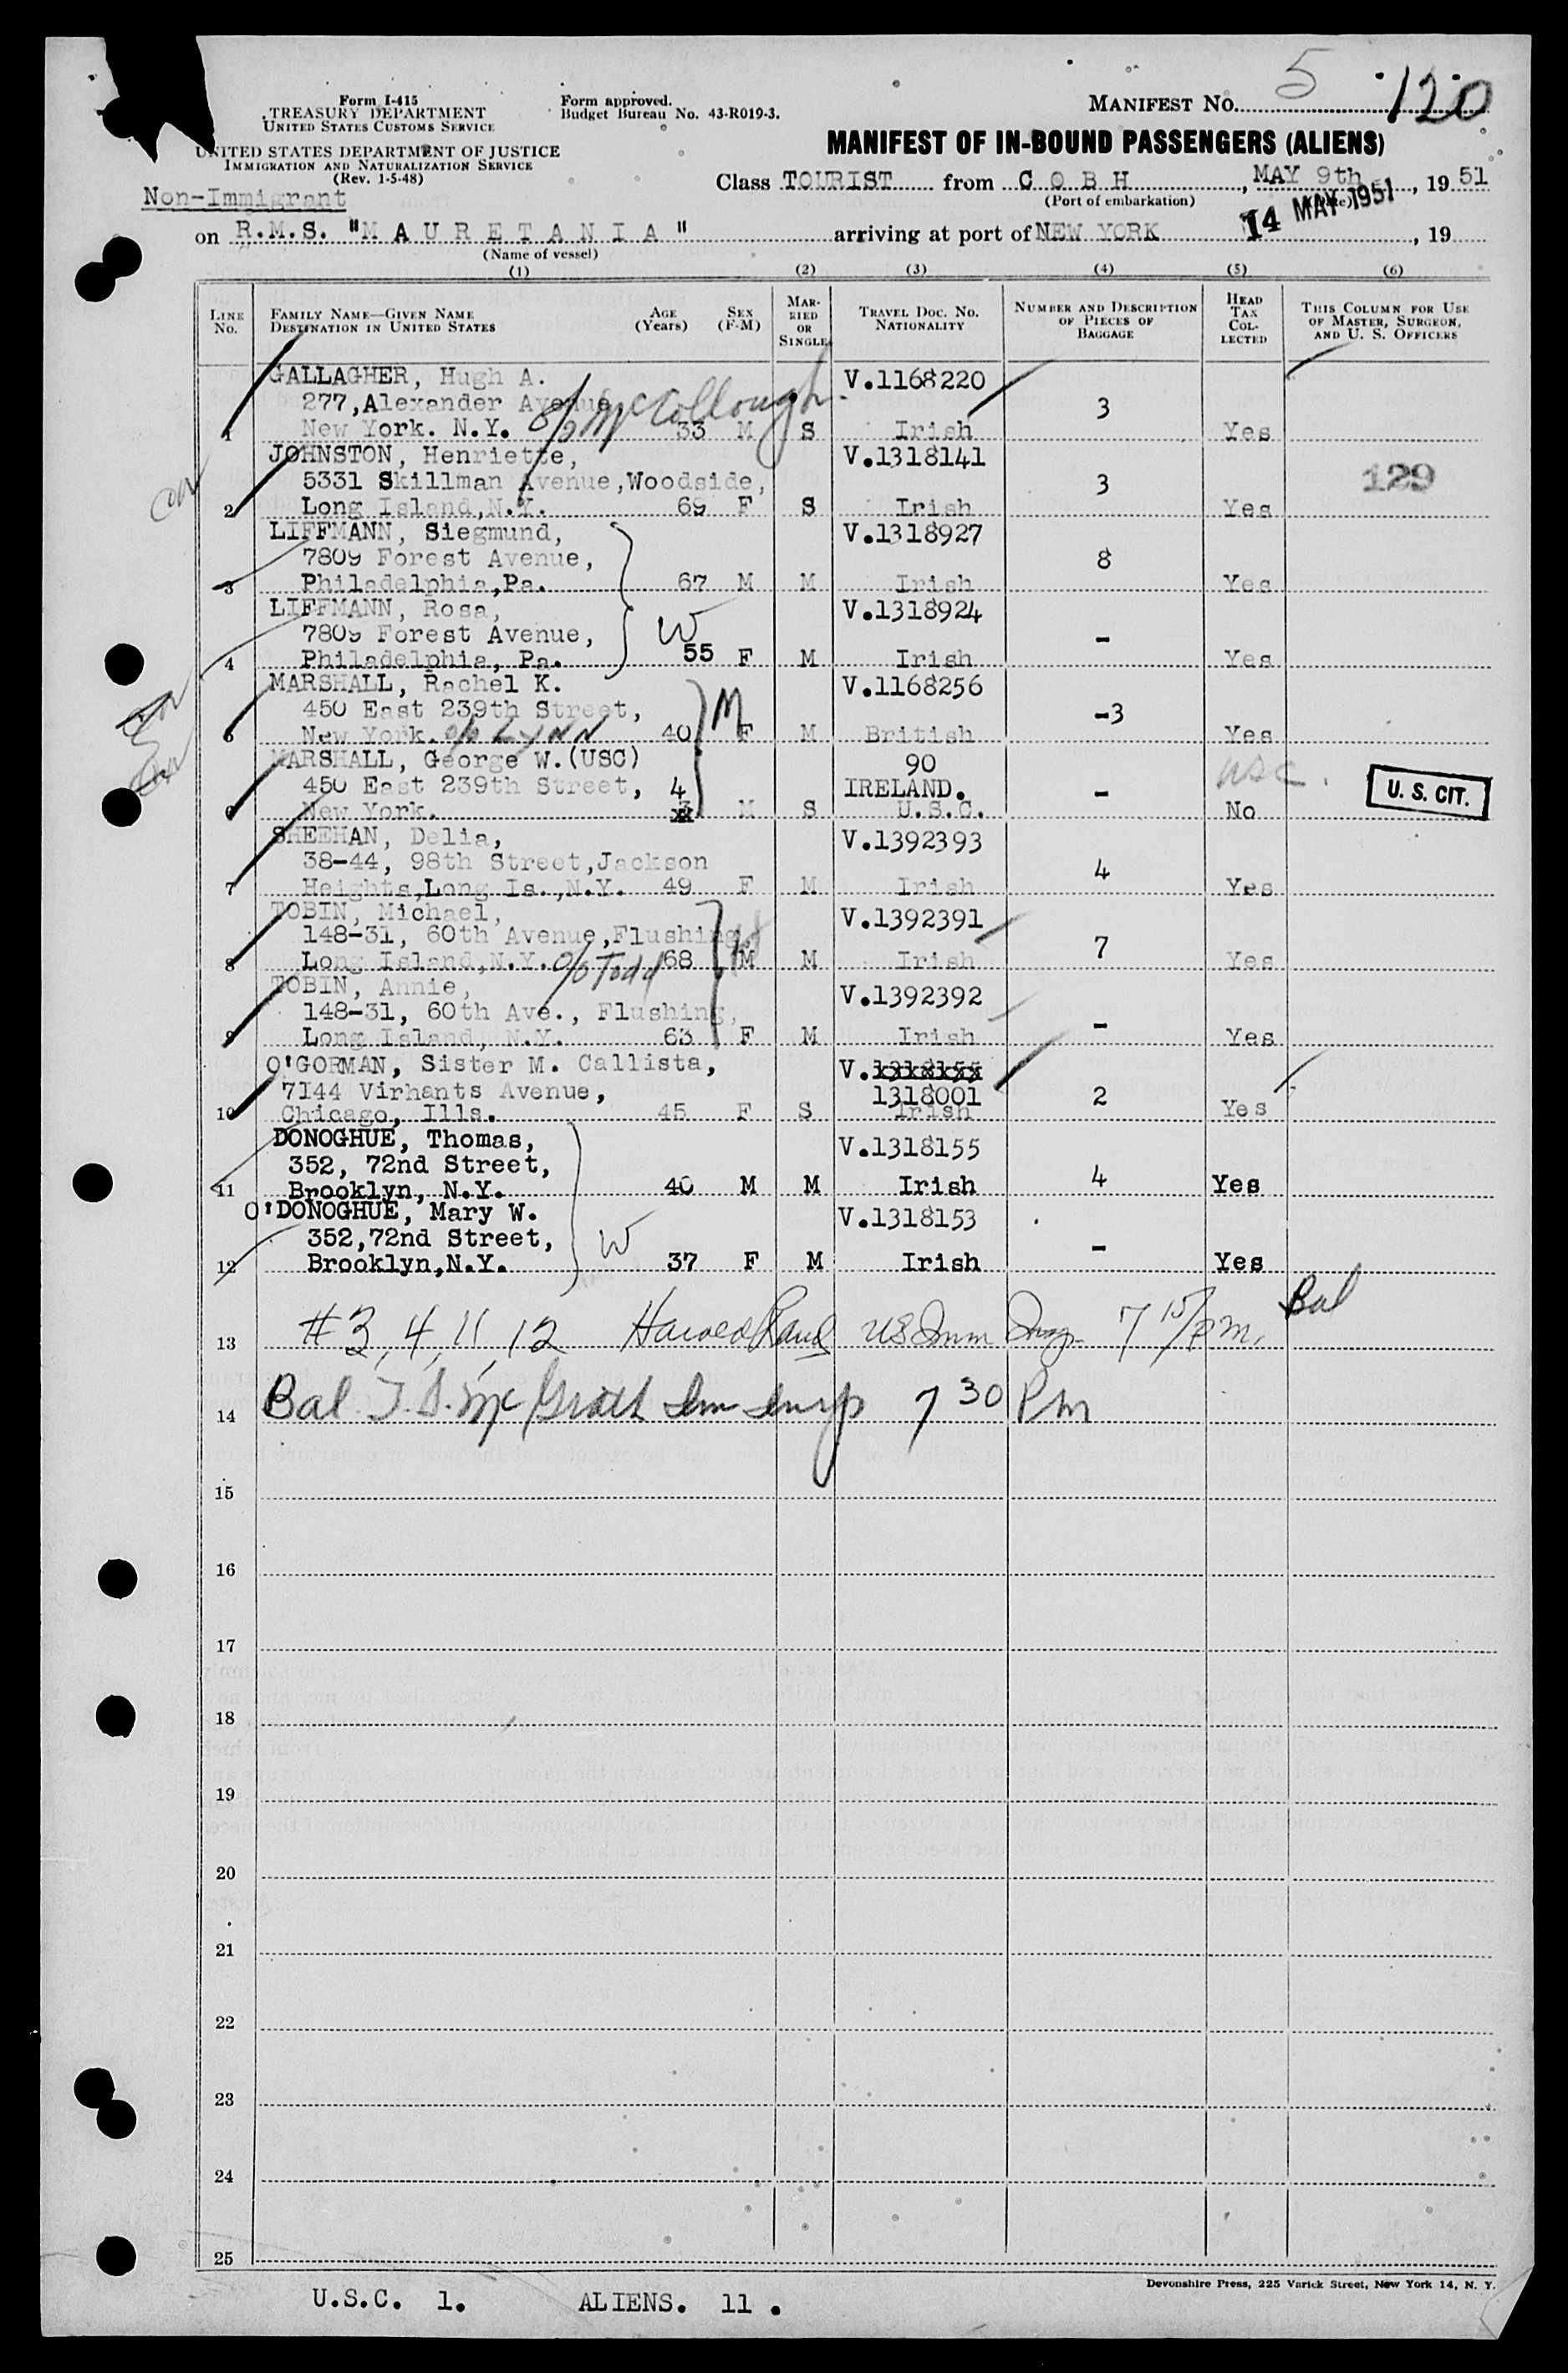 Form I-415
TREASURY DEPARTMENT
UNITED STATES CUSTOMS SERVICE
UNITED STATES DEPARTMENT OF JUSTICE
IMMIGRATION AND NATURALIZATION SERVICE
(Rev. 1-5-48)
Form approved.
Budget Bureau No. 43-R019-3.
MANIFEST NO. 5 120
MANIFEST OF IN-BOUND PASSENGERS (ALIENS)
Non-Immigrant
Class TOURIST from COBH, MAY 9th, 19 51
(Port of embarkation) (Date)
14 MAY 1951
on R.M.S. "MAURETANIA" arriving at port of NEW YORK, 19
(Name of vessel)
(1) (2) (3) (4) (5) (6)
LINE No. FAMILY NAME—GIVEN NAME DESTINATION IN UNITED STATES AGE (Years) SEX (F-M) MARRIED OR SINGLE TRAVEL DOC. NO. NATIONALITY NUMBER AND DESCRIPTION OF PIECES OF BAGGAGE HEAD TAX COLLECTED THIS COLUMN FOR USE OF MASTER, SURGEON, AND U. S. OFFICERS
GALLAGHER, Hugh A. V.1168220
277,Alexander Avenue c/o McCollough 3
1 New York. N.Y. 33 M S Irish Yes
JOHNSTON, Henriette, V.1318141
5331 Skillman Avenue,Woodside, 3 129
2 Long Island,N.Y. 69 F S Irish Yes
LIFFMANN, Siegmund, V.1318927
7809 Forest Avenue, 8
3 Philadelphia,Pa. 67 M M Irish Yes
LIFFMANN, Rosa, V.1318924
7809 Forest Avenue, W -
4 Philadelphia, Pa. 55 F M Irish Yes
MARSHALL, Rachel K. V.1168256
450 East 239th Street, M -3
5 New York. c/o LYNN 40 F M British Yes
MARSHALL, George W.(USC) 90 USC.
450 East 239th Street, 4 IRELAND. - U. S. CIT.
6 New York. M S U.S.C. No
SHEEHAN, Delia, V.1392393
38-44, 98th Street,Jackson 4
7 Heights,Long Is.,N.Y. 49 F M Irish Yes
TOBIN, Michael, V.1392391
148-31, 60th Avenue,Flushing, 7
8 Long Island,N.Y. c/o Todd 68 M M Irish Yes
TOBIN, Annie, V.1392392
148-31, 60th Ave., Flushing, -
9 Long Island, N.Y. 63 F M Irish Yes
O'GORMAN, Sister M. Callista, V.1318155
7144 Virhants Avenue, 1318001 2
10 Chicago, Ills. 45 F S Irish Yes
DONOGHUE, Thomas, V.1318155
352, 72nd Street, 4
11 Brooklyn, N.Y. 40 M M Irish Yes
O'DONOGHUE, Mary W. V.1318153
352,72nd Street, W -
12 Brooklyn,N.Y. 37 F M Irish Yes
13 #3, 4, 11, 12 Harold Rand US Imm Insp 7 15/pm. Bal
14 Bal T.S. McGrath Imm Insp 7 30 Pm
15
16
17
18
19
20
21
22
23
24
25
Devonshire Press, 225 Varick Street, New York 14, N. Y.
U.S.C. 1. ALIENS. 11.